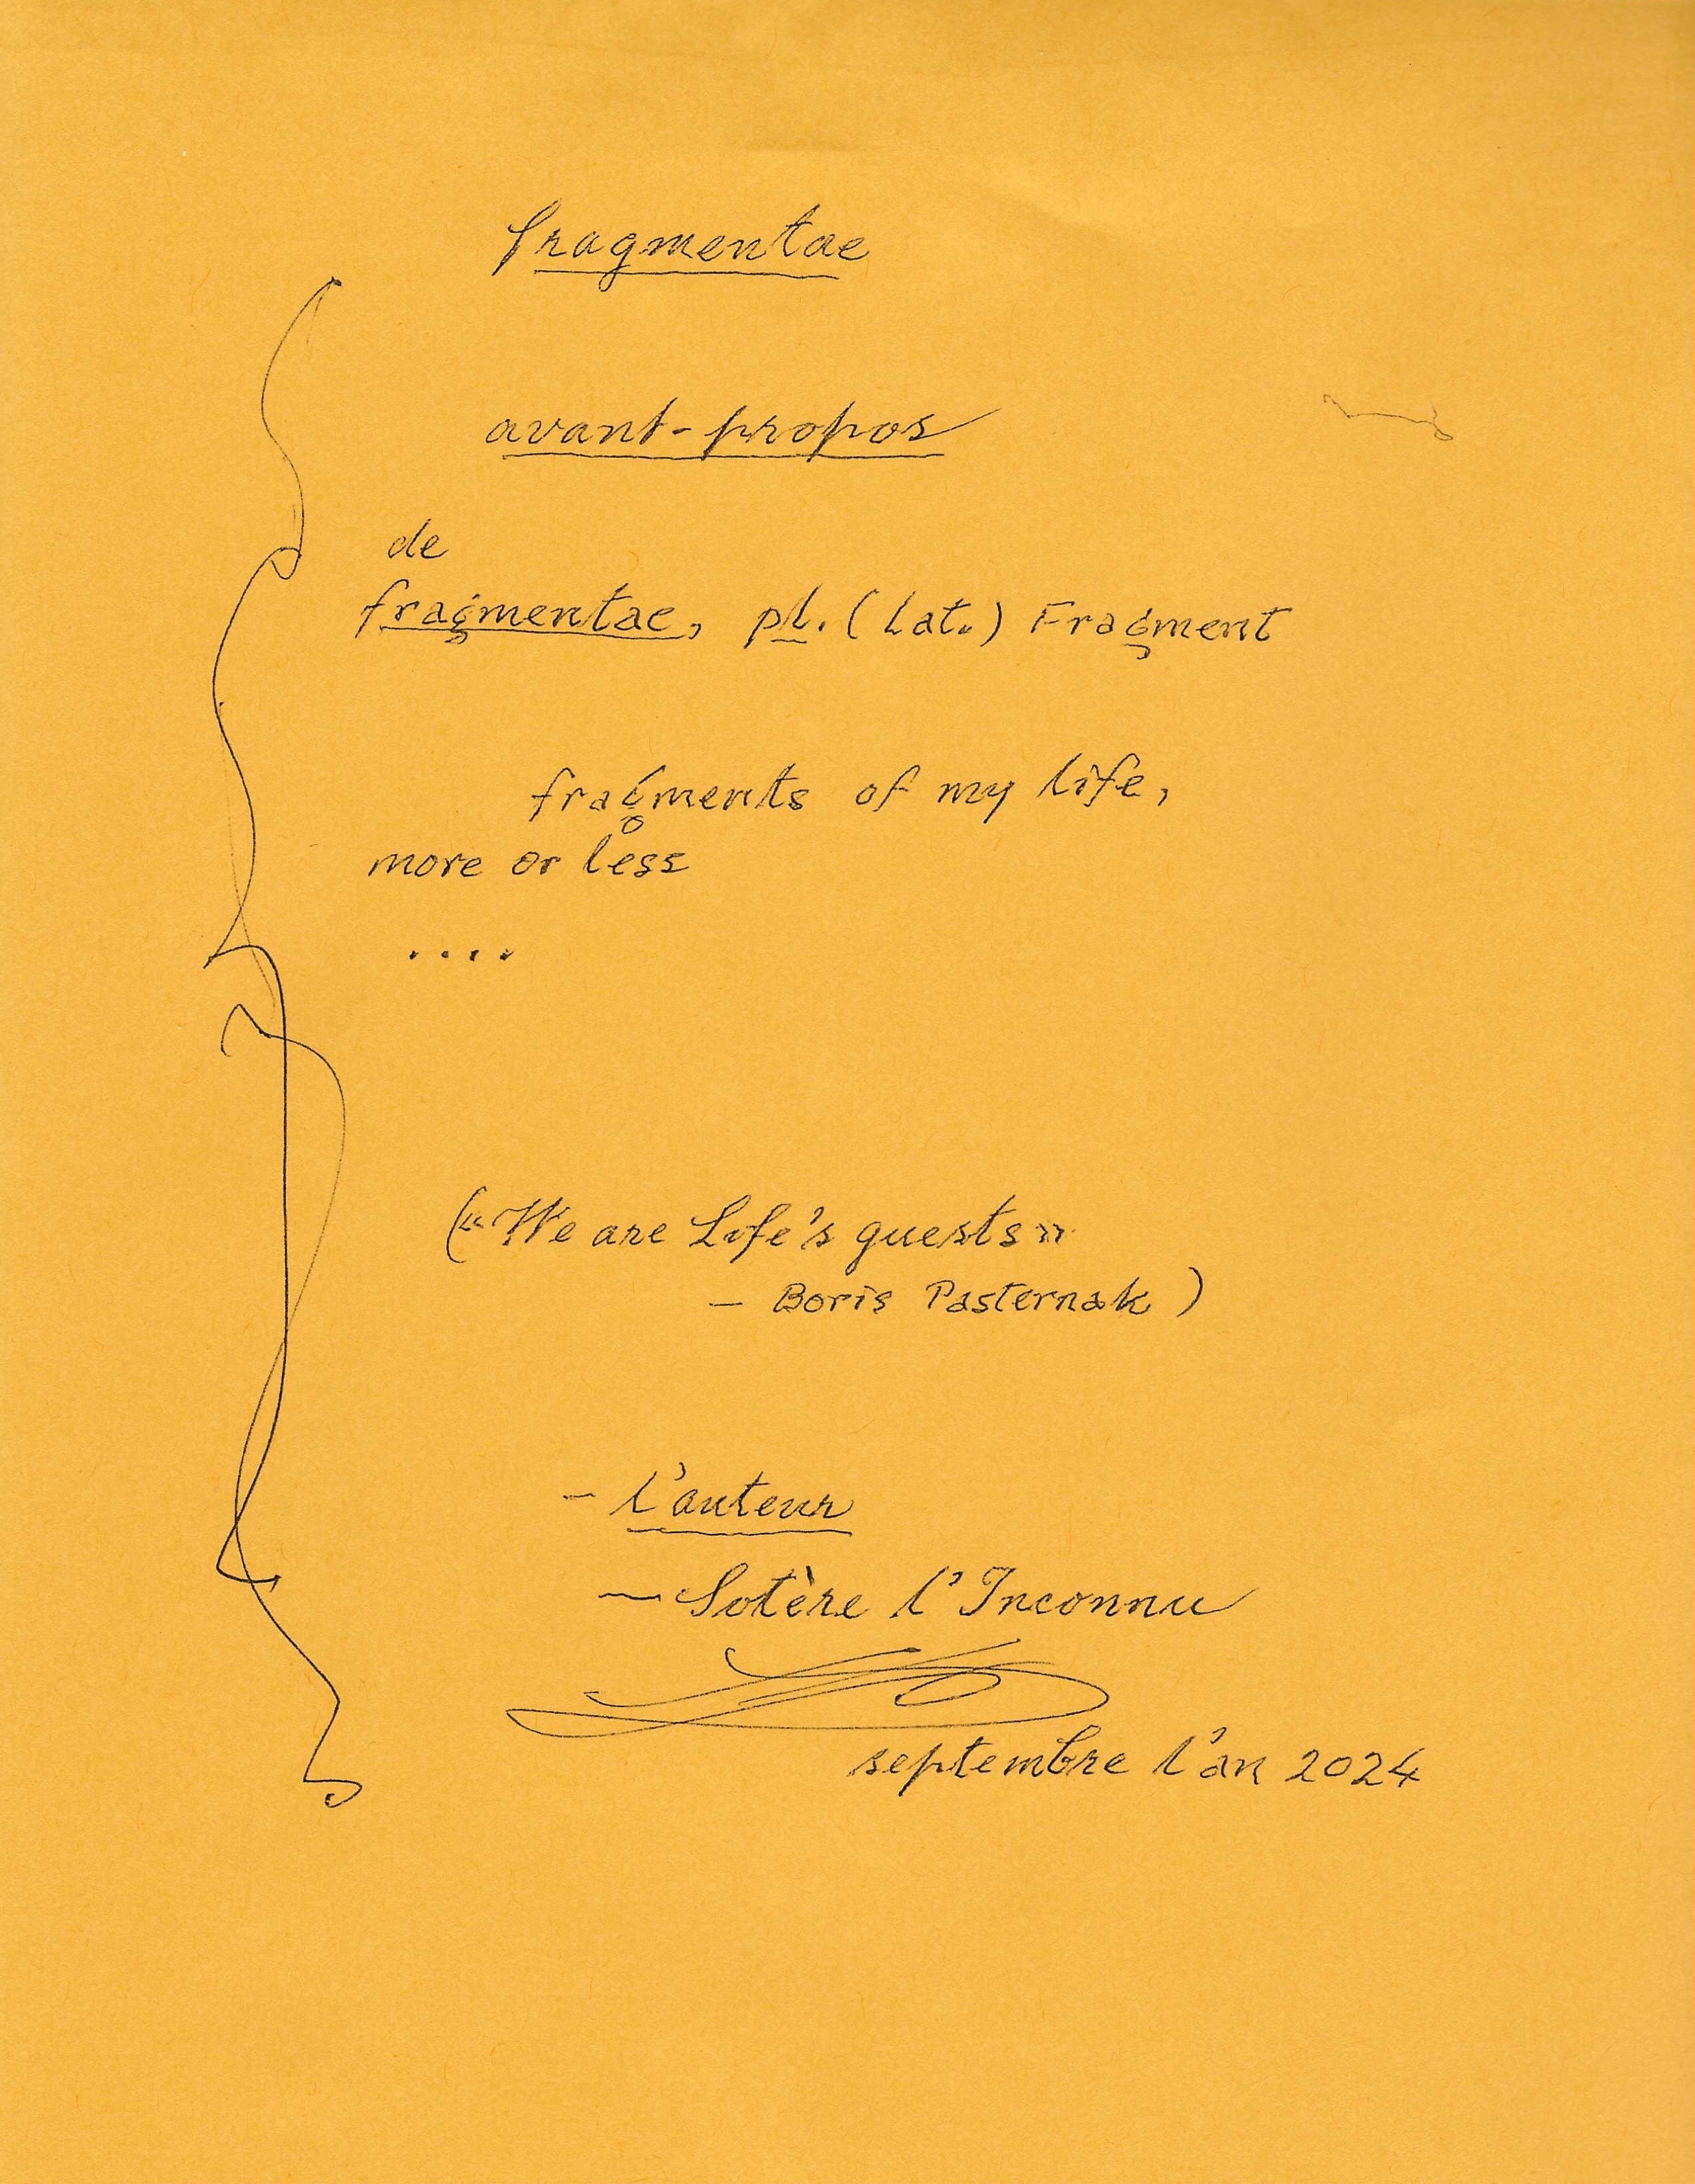 fragmentae
avant-propos
de
fragmentae, pl. (Lat.) Fragment
fragments of my life,
more or less
....
(«We are Life's guests»
– Boris Pasternak)
– l'auteur
– Sotère l'Inconnu
septembre l'an 2024